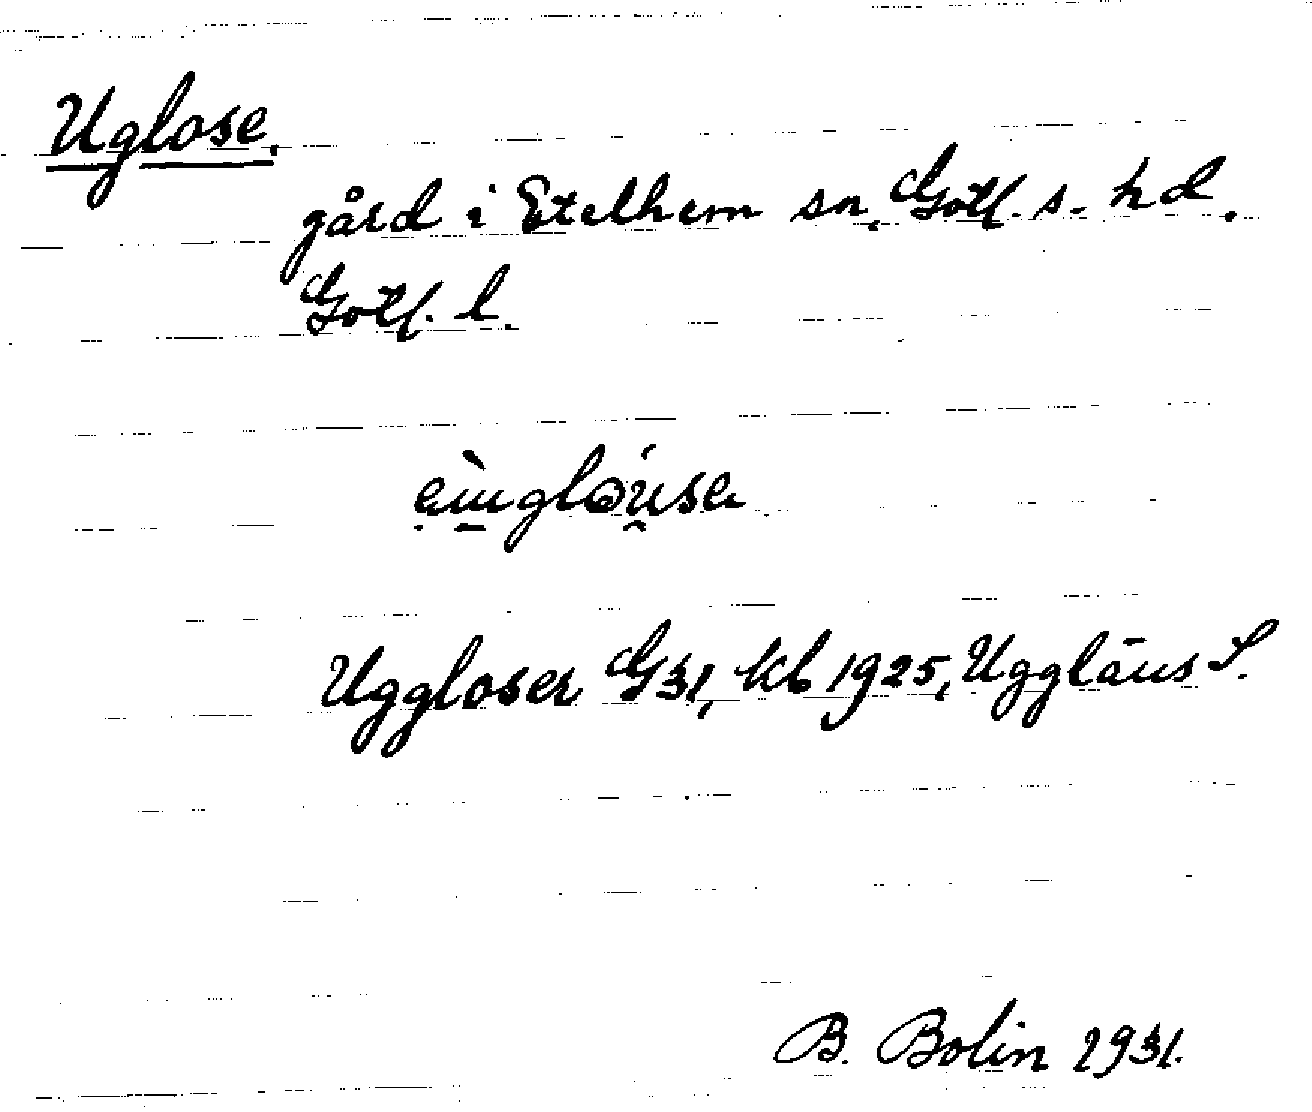 Uglose.
gård i Etelhem sn, Gotl. s. hd.
Gotl. l.
Uggloser G31, kb 1925, Ugglāus S.
B. Bolin 1931.